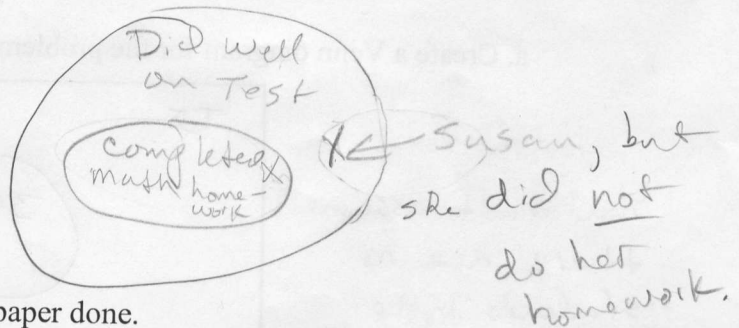 Did well
on Test
completed
math home-
work
X
X ← Susan, but
she did not
do her
homework.
paper done.